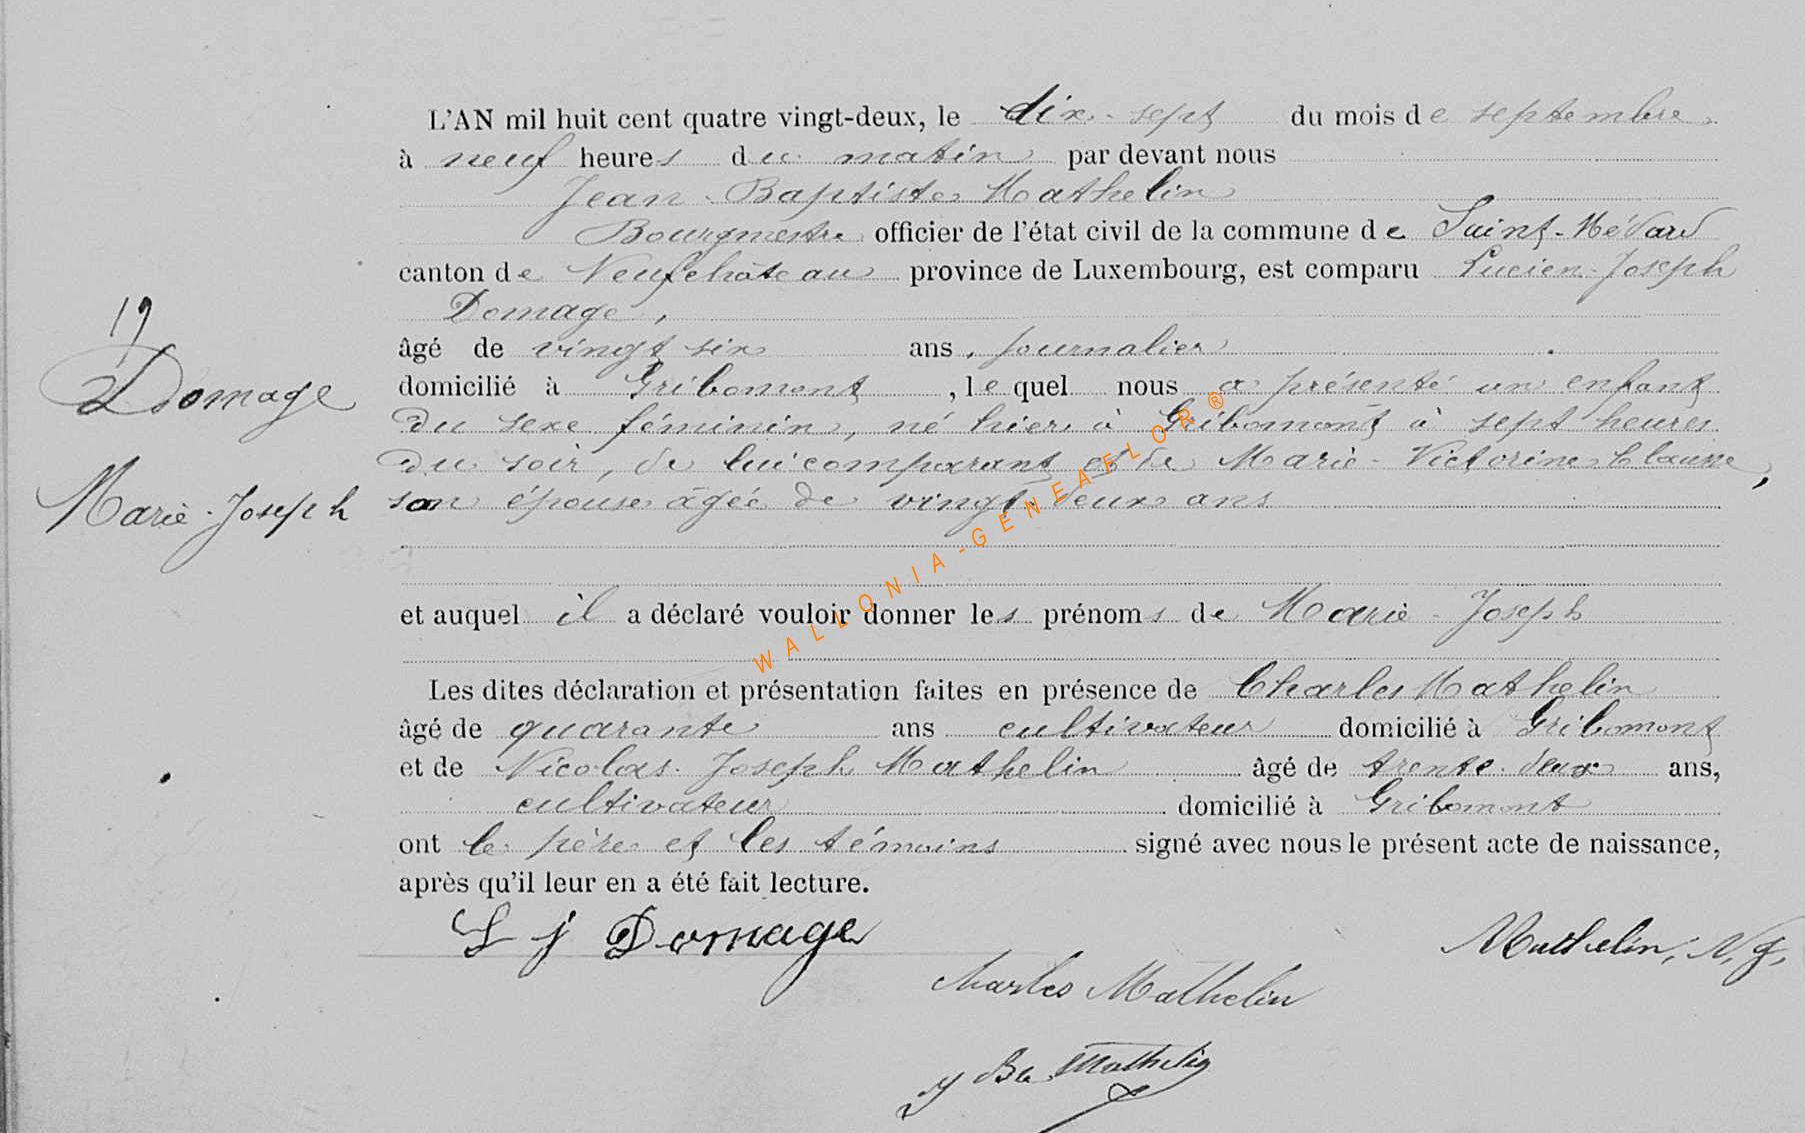 L'AN mil huit cent quatre vingt-deux, le dix-sept du mois de septembre
à neuf heures du matin par devant nous
Jean-Baptiste Mathelin
Bourgmestre officier de l'état civil de la commune de Saint-Médard
canton de Neufchâteau province de Luxembourg, est comparu Lucien-Joseph
Domage,
âgé de vingt six ans, journalier
domicilié à Gribomont, lequel nous a présenté un enfant
du sexe féminin, né hier à Gribomont à sept heures
du soir, de lui comparant et de Marie-Victorine Clausse,
son épouse âgée de vingt-deux ans
et auquel il a déclaré vouloir donner les prénoms de Marie-Joseph
Les dites déclaration et présentation faites en présence de Charles Mathelin
âgé de quarante ans cultivateur domicilié à Gribomont
et de Nicolas-Joseph Mathelin âgé de trente-deux ans,
cultivateur domicilié à Gribomont
ont le père et les témoins signé avec nous le présent acte de naissance,
après qu'il leur en a été fait lecture.
L J Domage
Mathelin, N. J.
Charles Mathelin
J Bte Mathelin
19
Domage
Marie-Joseph
WALLONIA-GENEAFLOR ®